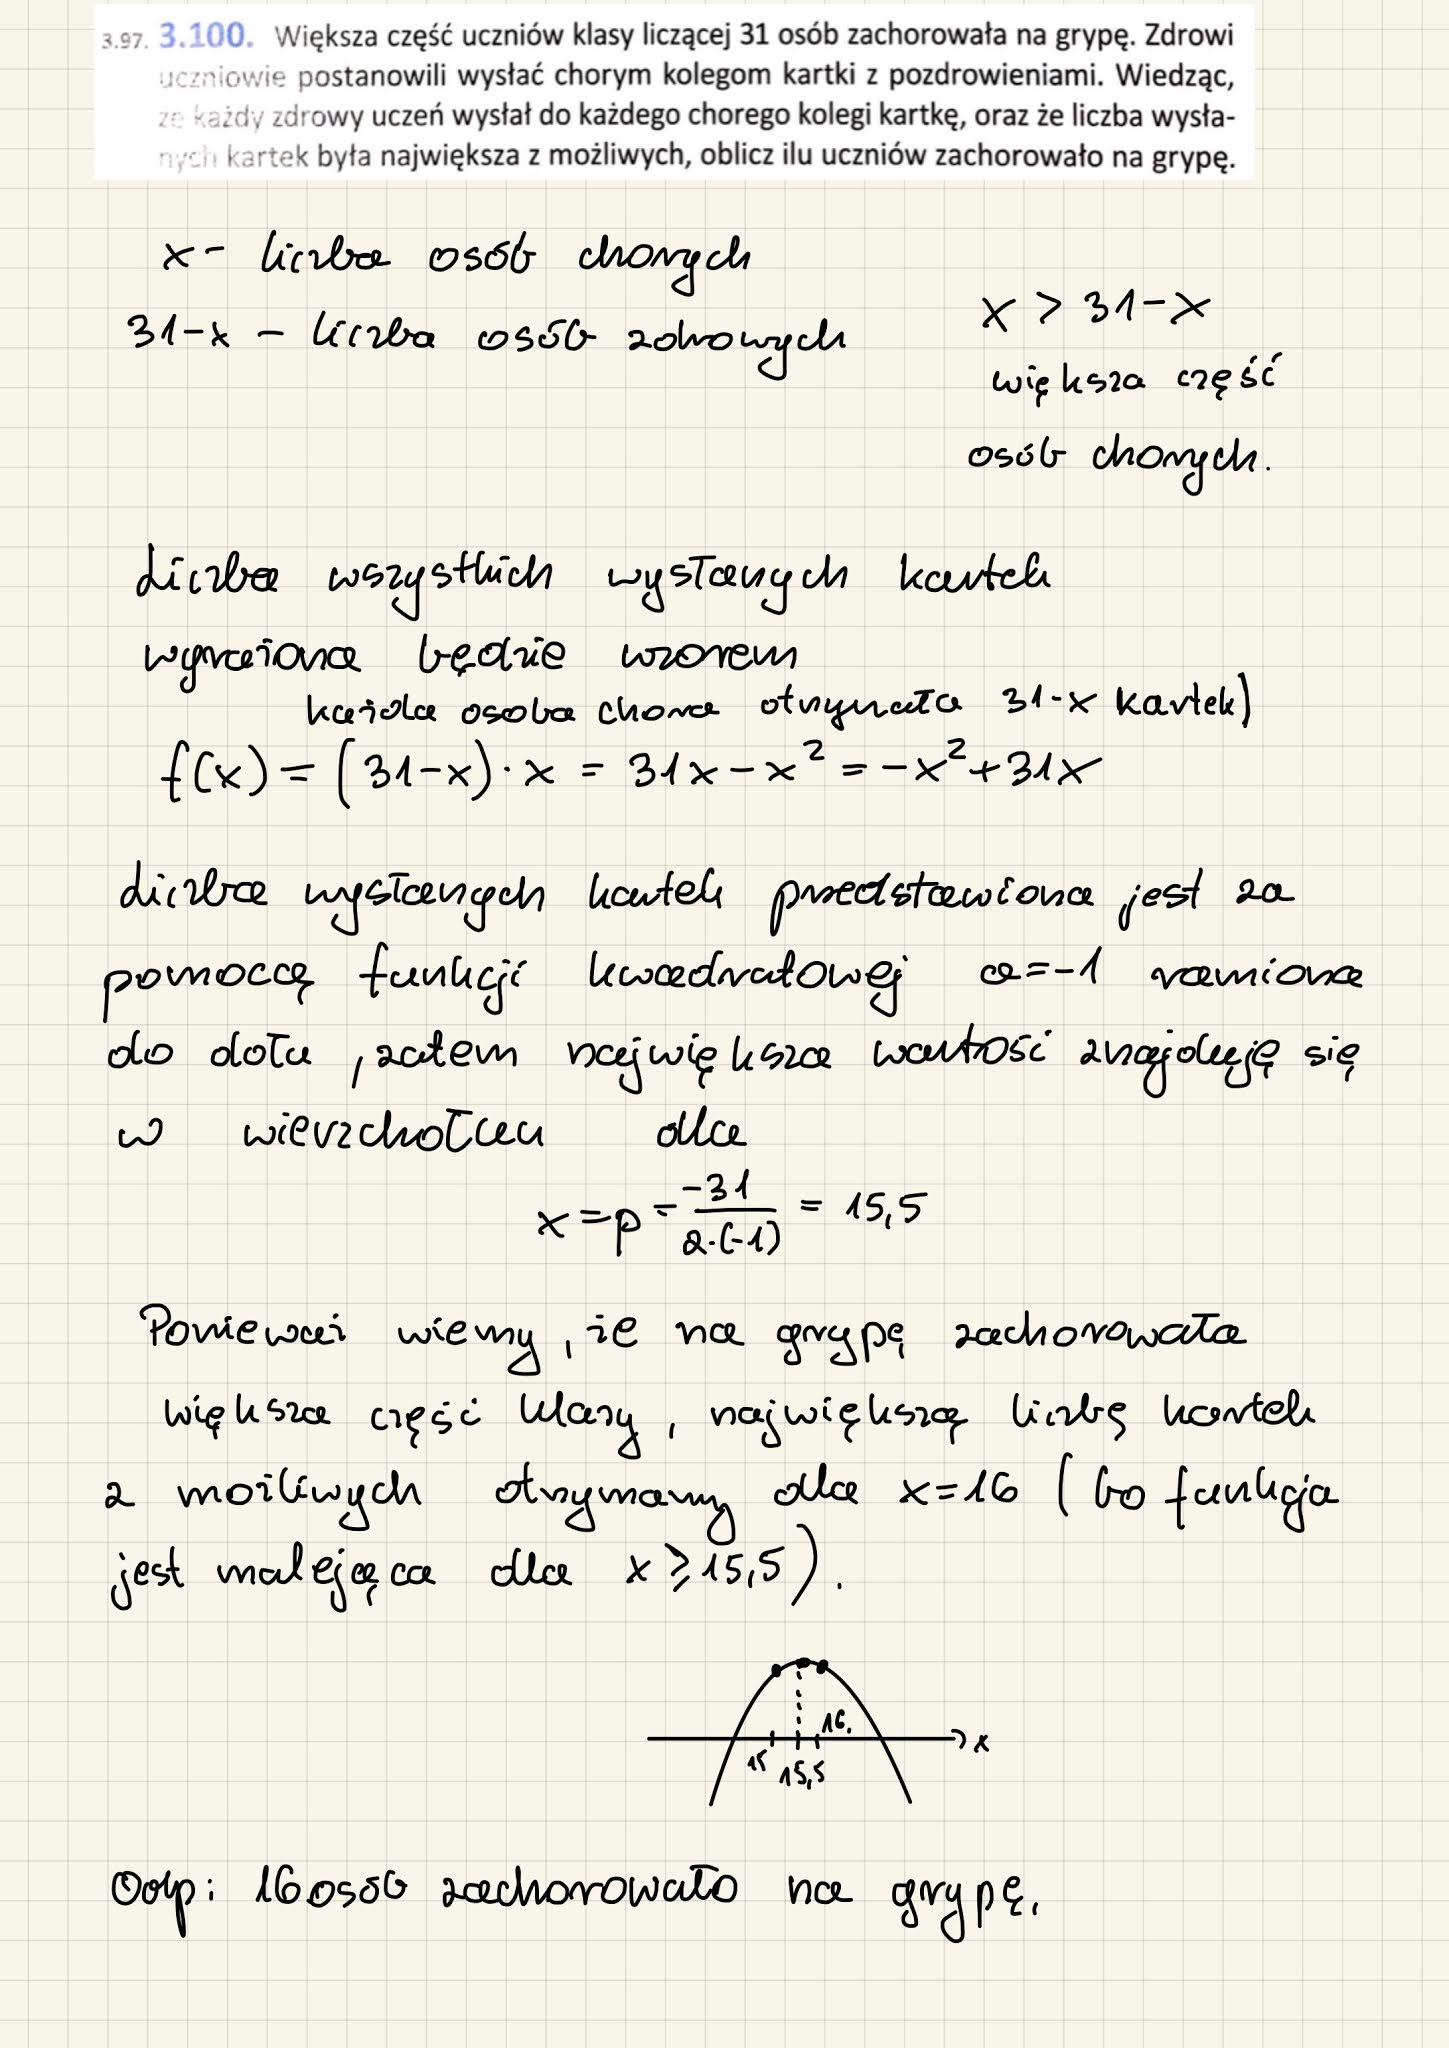 3.97. 3.100. Większa część uczniów klasy liczącej 31 osób zachorowała na grypę. Zdrowi
uczniowie postanowili wysłać chorym kolegom kartki z pozdrowieniami. Wiedząc,
że każdy zdrowy uczeń wysłał do każdego chorego kolegi kartkę, oraz że liczba wysła-
nych kartek była największa z możliwych, oblicz ilu uczniów zachorowało na grypę.
x - liczba osób chorych
31-x - liczba osób zdrowych
x > 31-x
większa część
osób chorych.
Liczba wszystkich wysłanych kartek
wyrażona będzie wzorem
każda osoba chora otrzymała 31-x kartek)
f(x) = (31-x)·x = 31x - x² = -x²+31x
Liczba wysłanych kartek przedstawiona jest za
pomocą funkcji kwadratowej a=-1 ramiona
do dołu, zatem największa wartość znajduję się
w wierzchołku dla
x = p = -31/2·(-1) = 15,5
Ponieważ wiemy, że na grypę zachorowała
większa część klasy, największą liczbę kartek
z możliwych otrzymamy dla x=16 (bo funkcja
jest malejąca dla x ⩾ 15,5).
16.
x
15
15,5
Odp: 16 osób zachorowało na grypę.